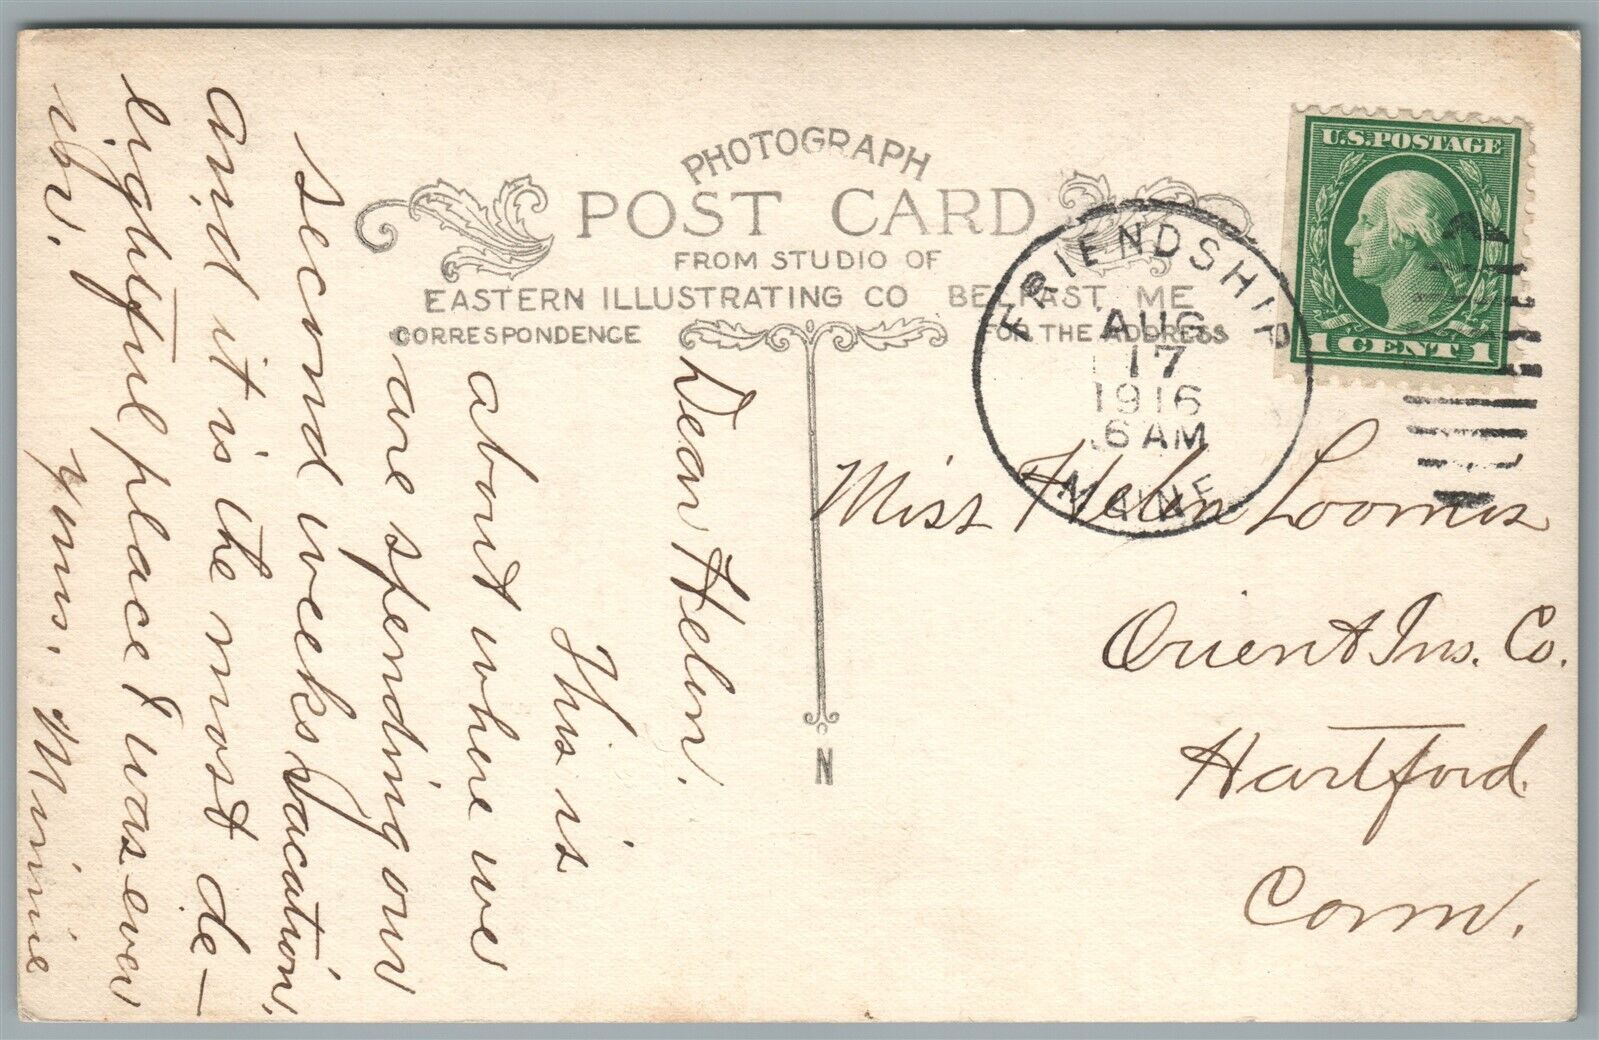 PHOTOGRAPH
POST CARD
FROM STUDIO OF
EASTERN ILLUSTRATING CO BELFAST, ME
CORRESPONDENCE
FOR THE ADDRESS
N
U.S. POSTAGE
1 CENT 1
FRIENDSHIP
AUG
17
1916
6 AM
MAINE
Miss Helen Loomis
Orient Ins. Co.
Hartford.
Conn.
Dear Helen.
This is
about where we
are spending our
second weeks vacation,
and it is the most de-
lightful place I was ever
in.
yours. Minnie